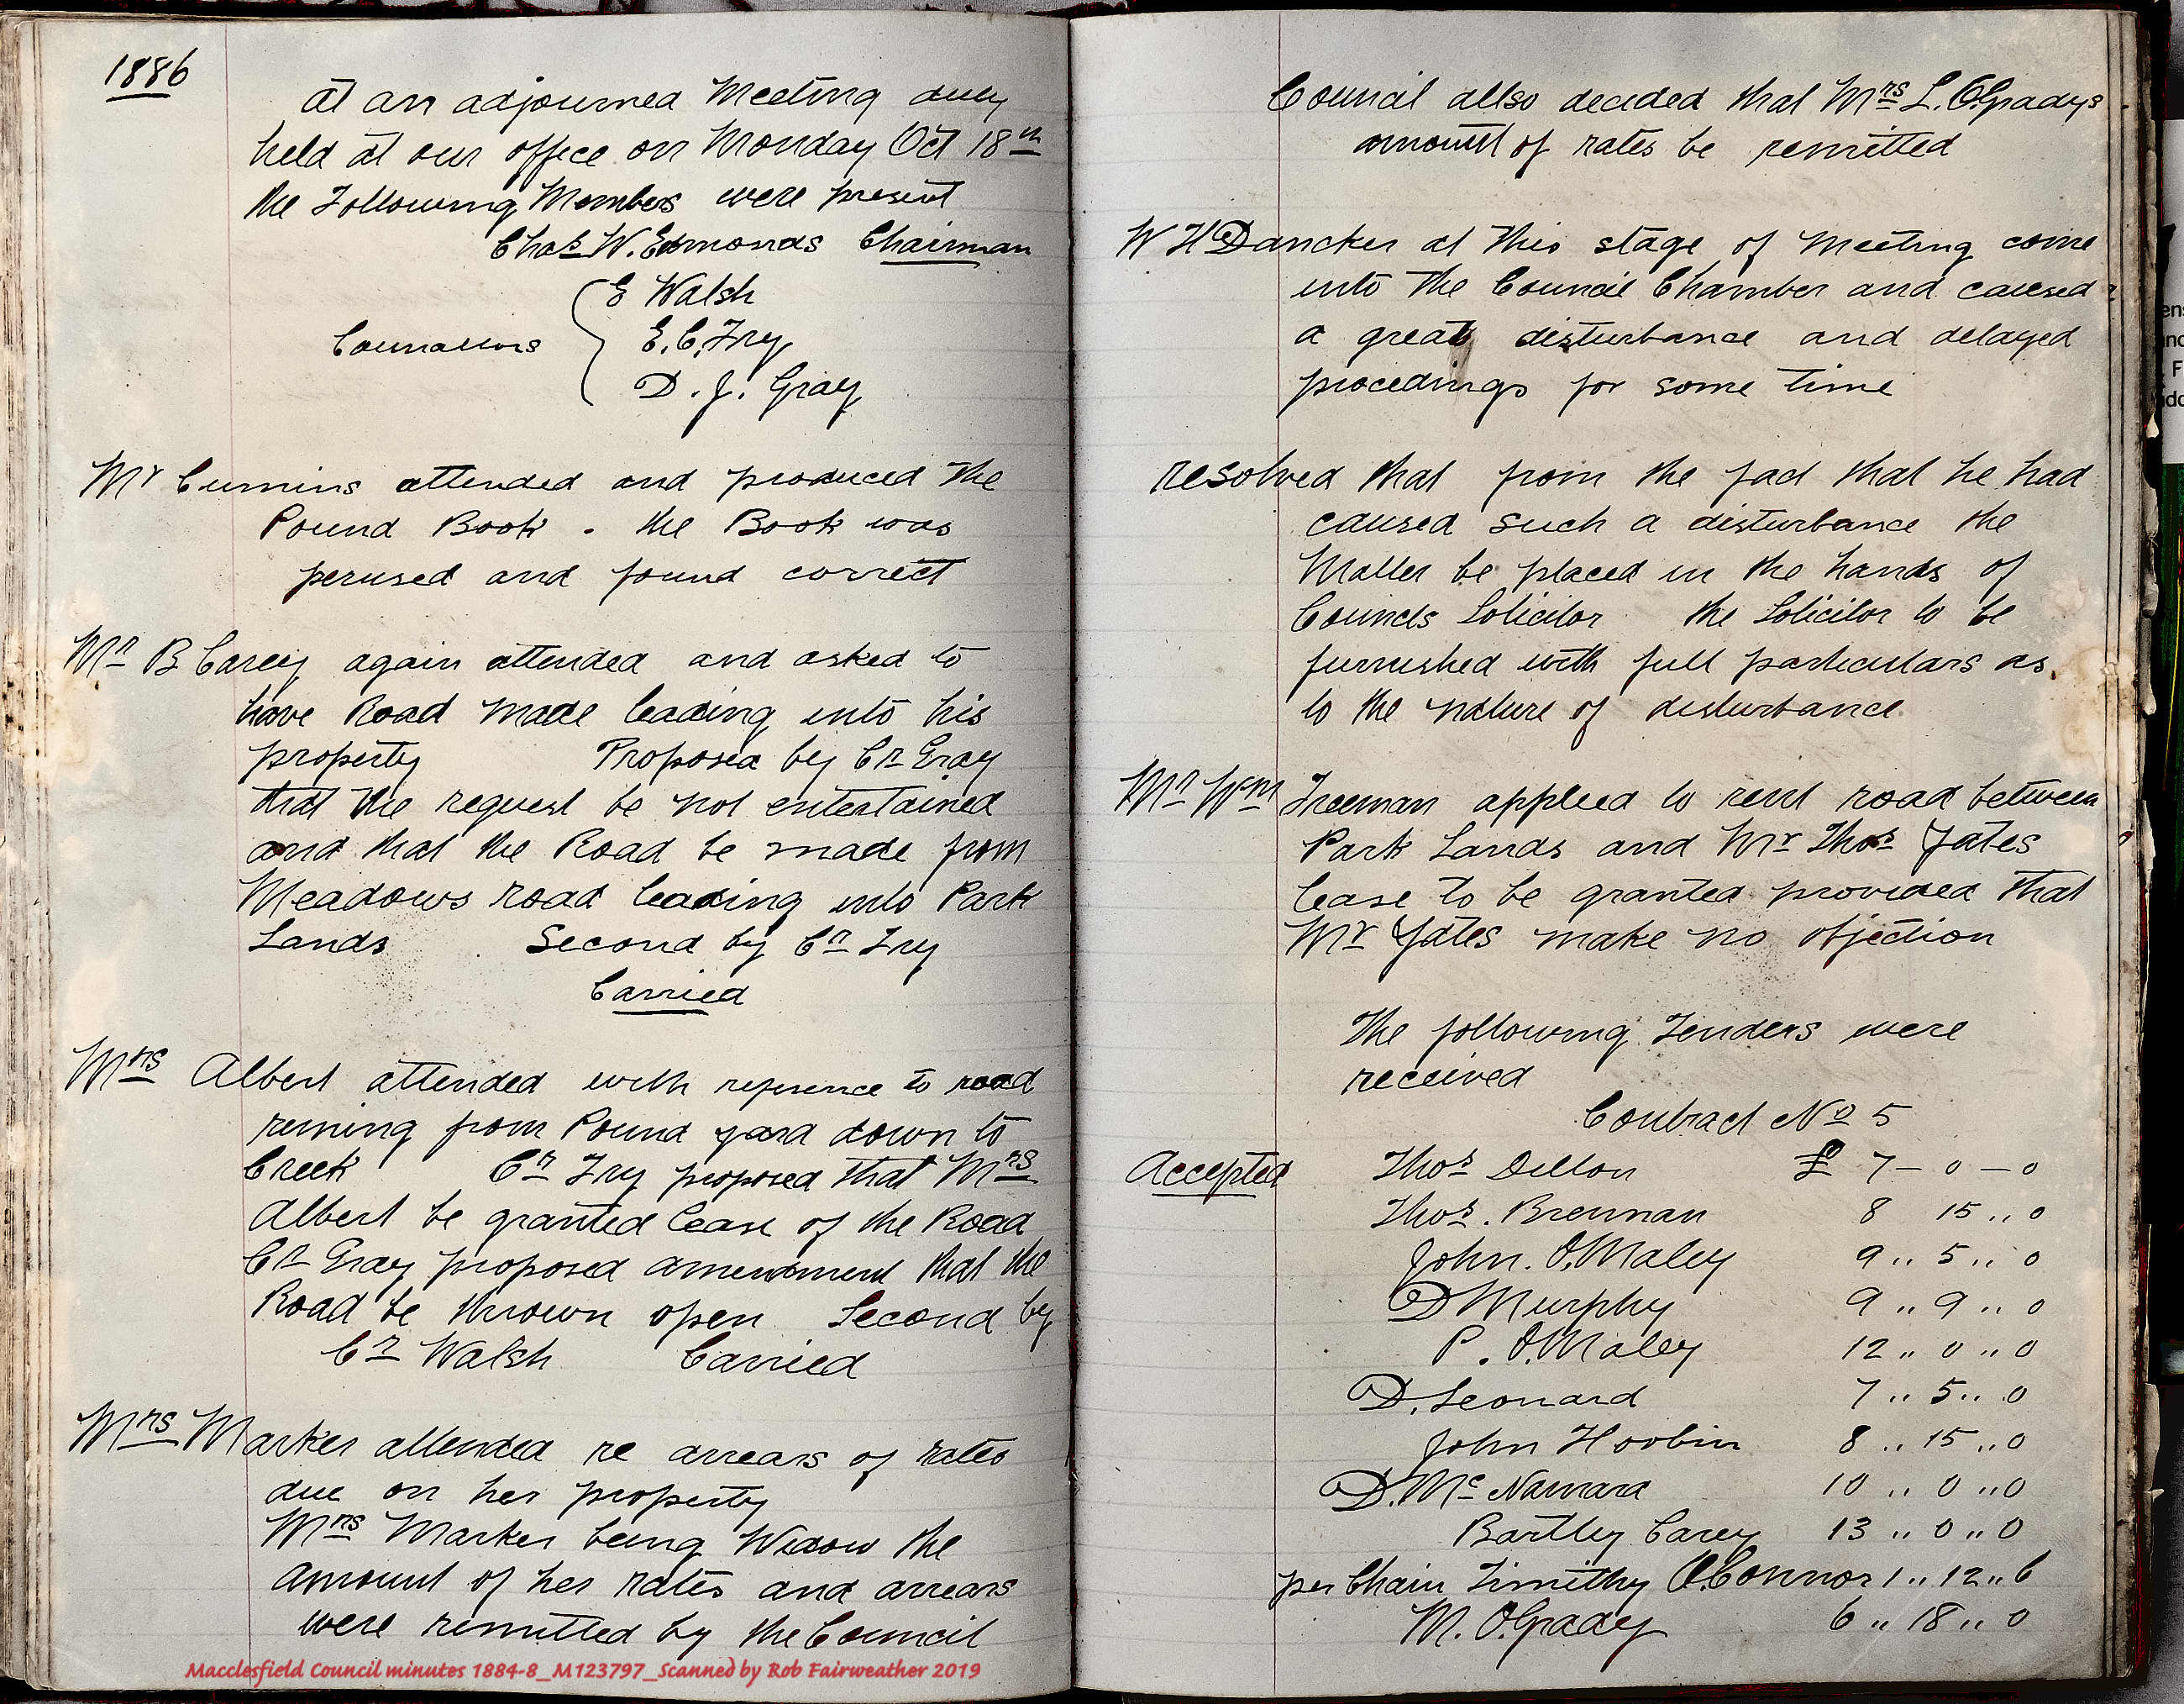 1886
At an adjourned Meeting duly
held at our office on Monday Oct 18th
the Following Members were present
Chas W. Edmonds Chairman
E Walsh
Councillors E. C. Fry
D. J. Gray
Mr Cumins attended and produced the
Pound Book. the Book was
perused and found correct
Mr B Carey again attended and asked to
have Road made leading into his
property Proposed by Cr Gray
that the request be not entertained
and that the Road be made from
Meadows road leading into Park
Lands Second by Cr Fry
Carried
Mrs Albert attended with reference to road
runing from Pound yard down to
Creek Cr Fry proposed that Mrs
Albert be granted lease of the Road
Cr Gray proposed amendment that the
Road be thrown open Second by
Cr Walsh Carried
Mrs Marker attended re arrears of rates
due on her property
Mrs Marker being Widow the
amount of her rates and arrears
were remitted by the Council
Macclesfield Council minutes 1884-8_M123797_Scanned by Rob Fairweather 2019
Council allso decided that Mrs L. O.Gradys
amount of rates be remitted
W H Dancker at this stage of Meeting came
into the Council Chamber and caused
a great disturbance and delayed
procedings for some time
resolved that from the fact that he had
caused such a disturbance the
Matter be placed in the hands of
Councls Solicitor the Solicitor to be
furnushed with full particulars as
to the nature of disturbance
Mr Wm Freeman applied to rent road between
Park Lands and Mr Thos Yates
lease to be granted provided that
Mr Yates make no objection
The following Tenders were
received
Contract No 5
Accepted Thos Dillon £ 7 – 0 – 0
Thos. Brennan 8 15 ,, 0
John. O.Maley 9 ,, 5 ,, 0
D Murphy 9 ,, 9 ,, 0
P. O.Maley 12 ,, 0 ,, 0
D. Leonard 7 ,, 5 ,, 0
John Hoobin 8 ,, 15 ,, 0
D. Mc Namara 10 ,, 0 ,, 0
Bartley Carey 13 ,, 0 ,, 0
per Chain Timithy O.Connor 1 ,, 12 ,, 6
M. O.Grady 6 ,, 18 ,, 0